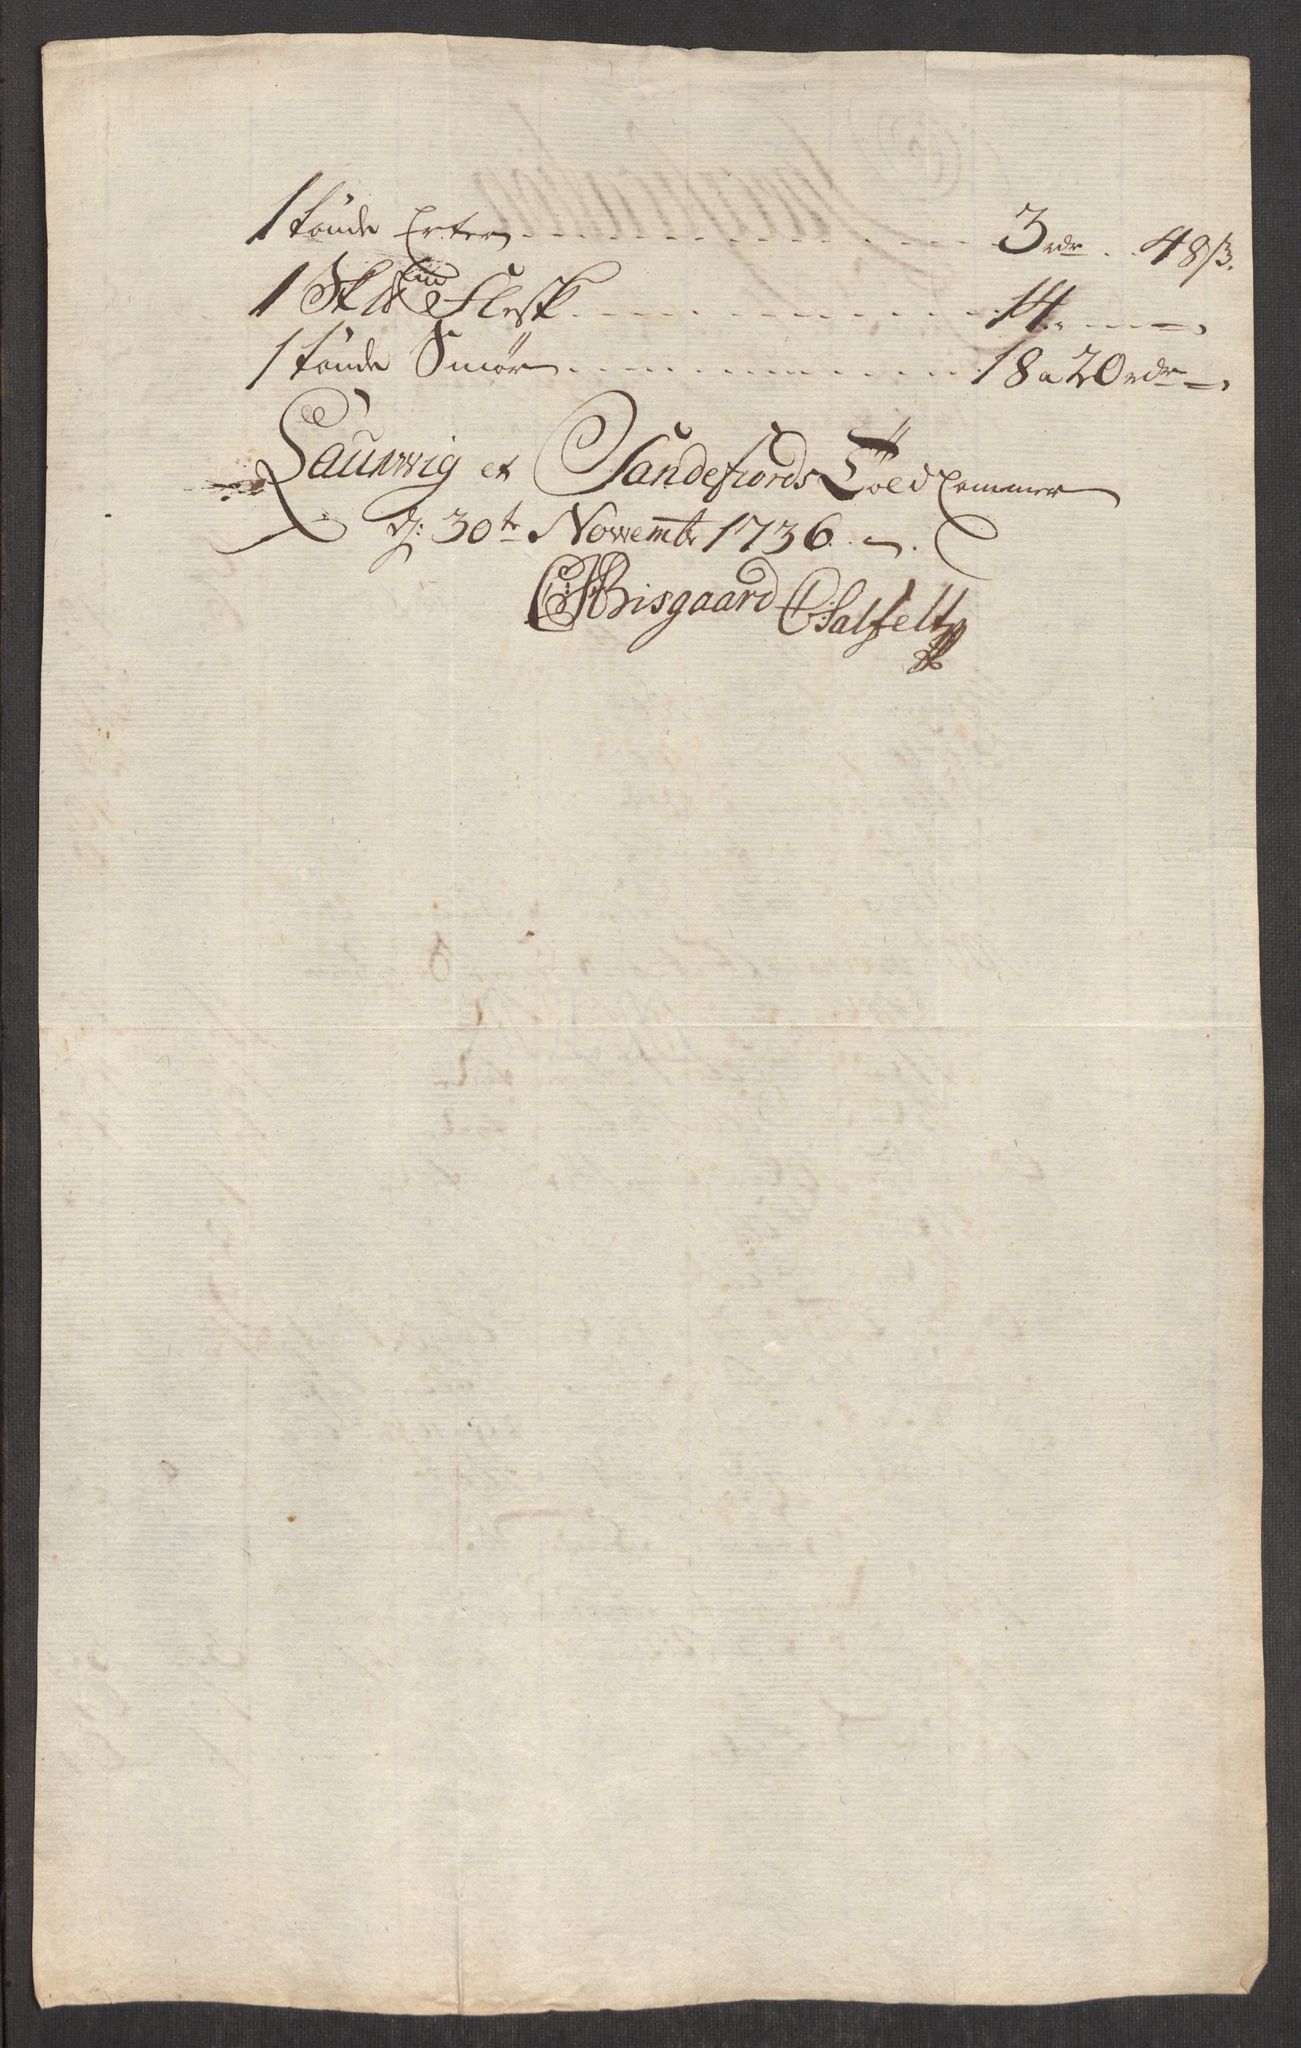 1 tönde Erter . . . 3 rdr . . 48 ß.
1 Sk℔ Flesk . . . 14. — —
1 tönde Smör . . . 18 a 20 rdr —
Laurwig et Sandefiords Told Cammer
d: 30te Novembr 1736.
Bisgaard CSalfelt